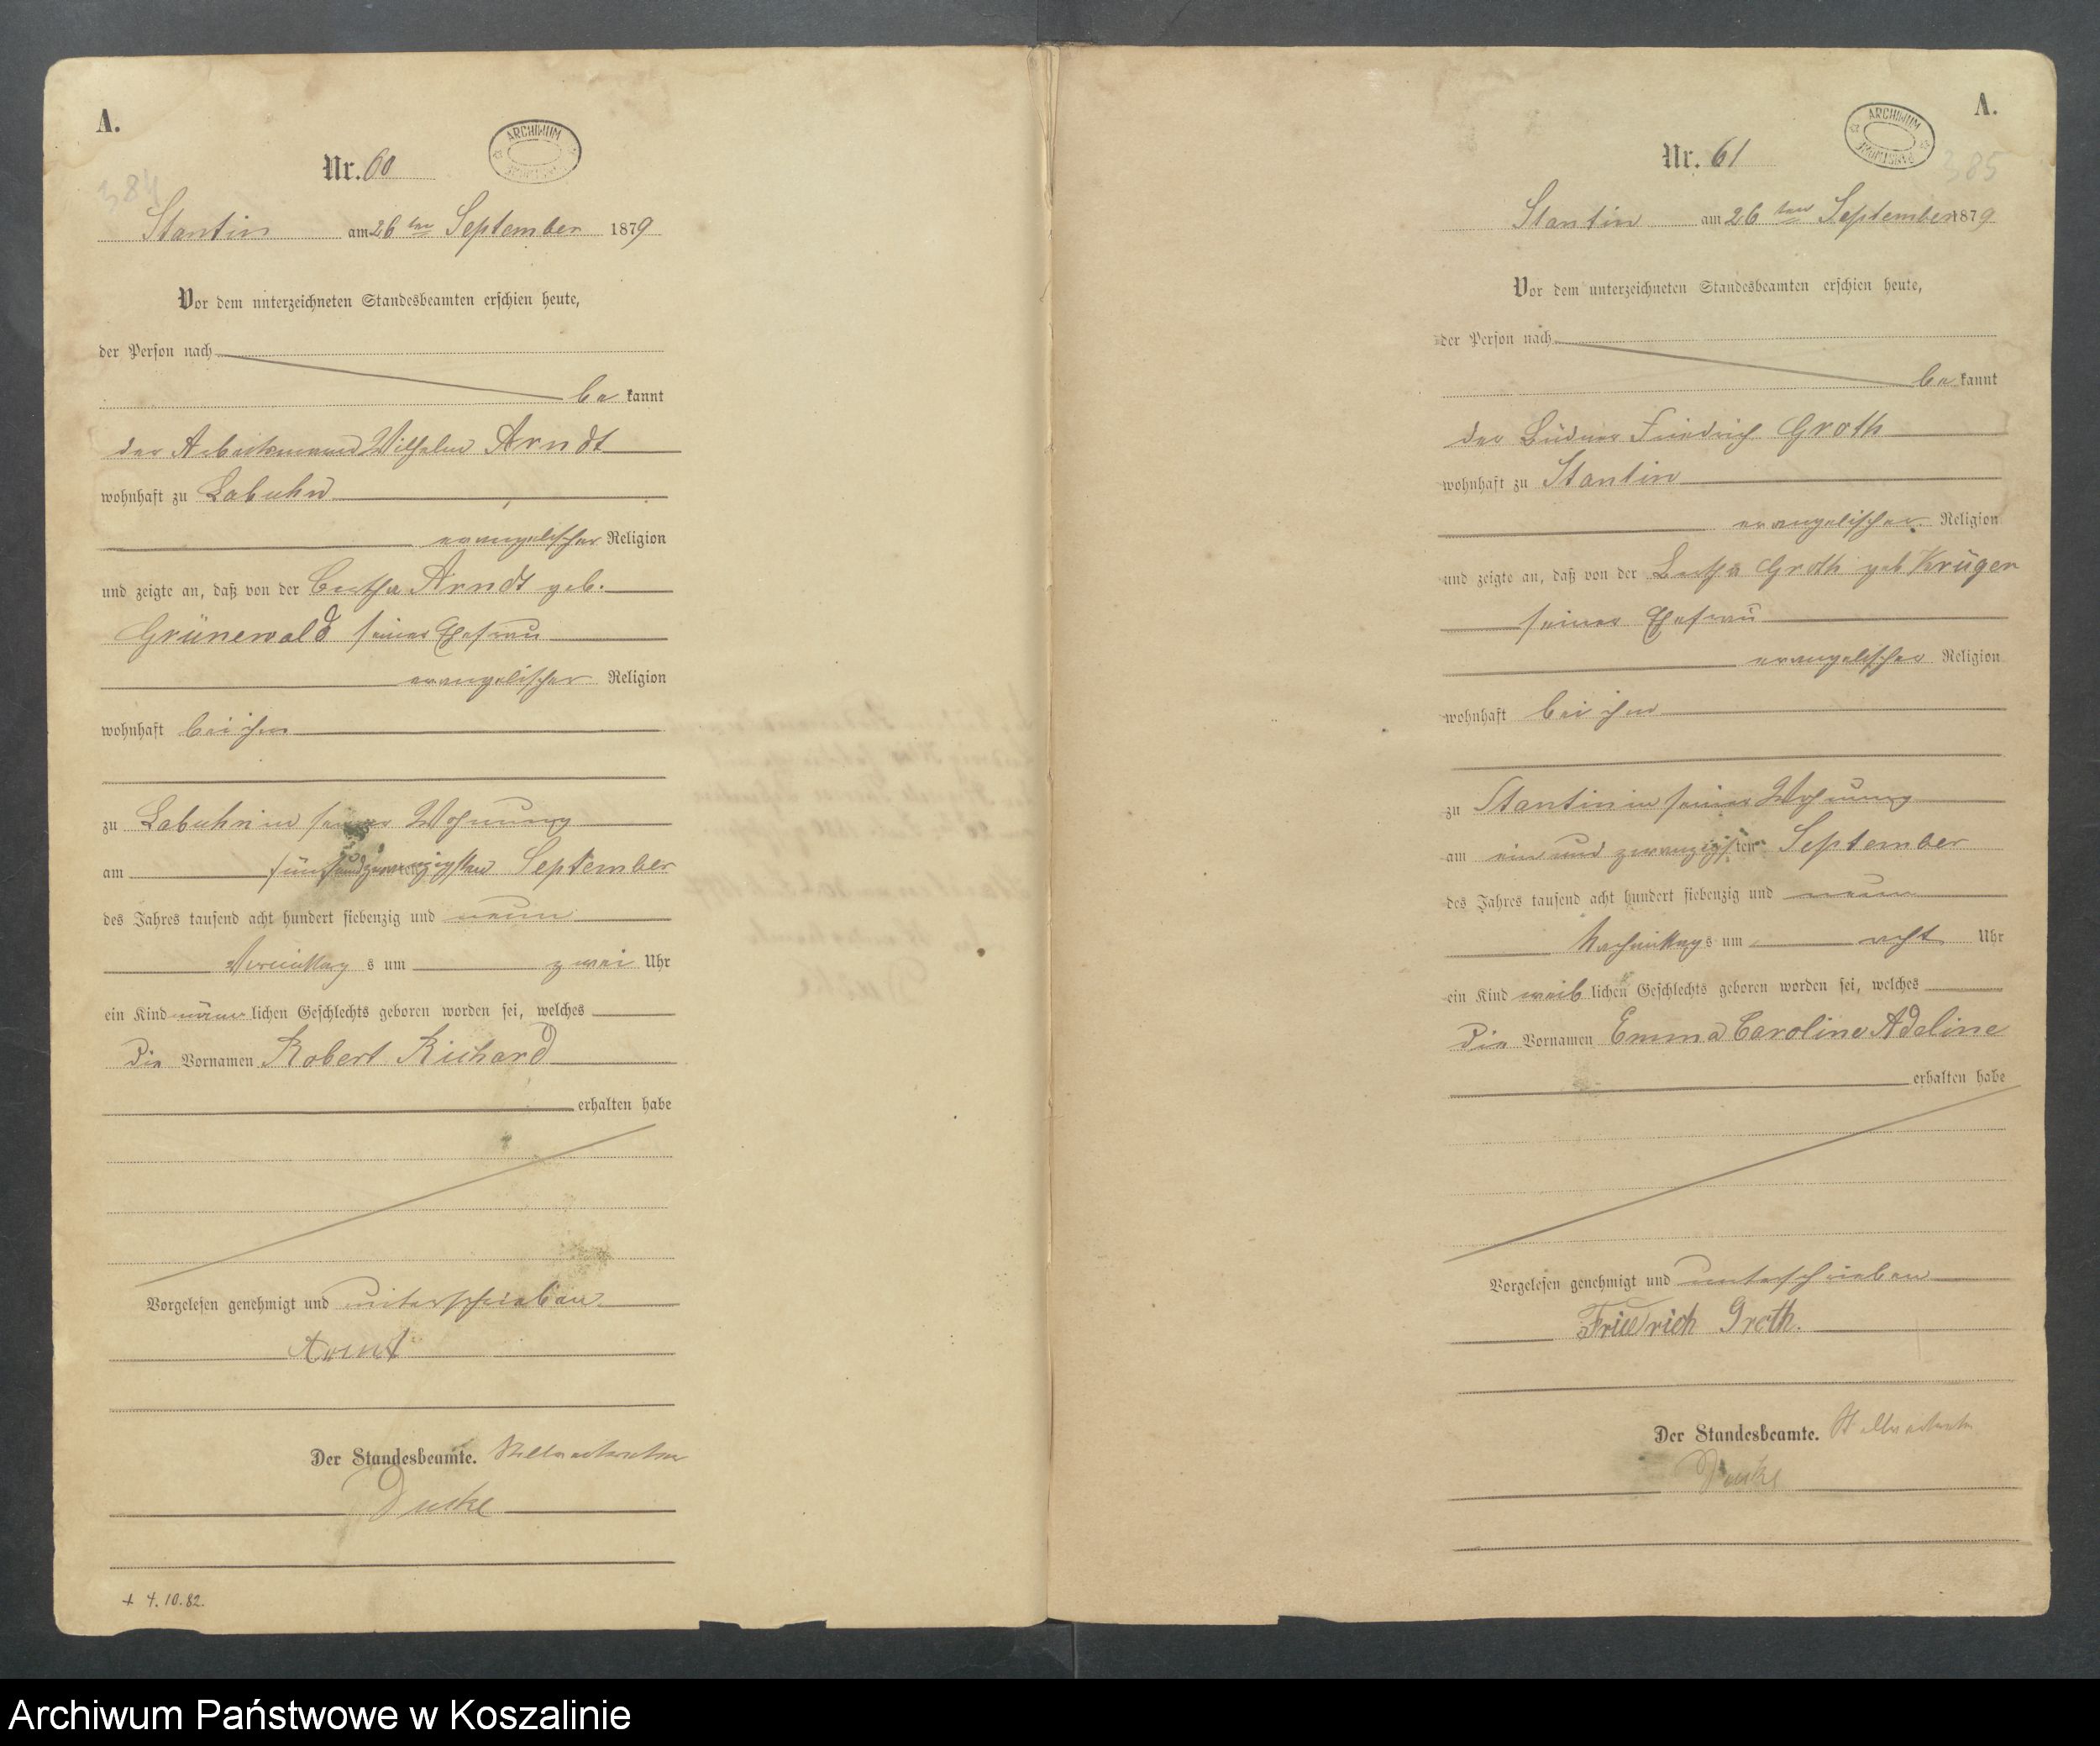 A.
Nr. 60
ARCHIWUM PAŃSTWOWE
384
Stantin am 26ten September 1879
Vor dem unterzeichneten Standesbeamten erschien heute,
der Person nach
be kannt
der Arbeitsmann Wilhelm Arndt
wohnhaft zu Labuhn
evangelischer Religion
und zeigte an, daß von der Bertha Arndt geb.
Grünewald seiner Ehefrau
evangelischer Religion
wohnhaft bei ihm
zu Labuhn in seiner Wohnung
am fünfundzwanzigsten September
des Jahres tausend acht hundert siebenzig und neun
Vormittag s um zwei Uhr
ein Kind männ lichen Geschlechts geboren worden sei, welches
die Vornamen Robert Richard
erhalten habe
Vorgelesen genehmigt und unterschrieben
Arndt
Der Standesbeamte. Stellvertreter
+ 4.10.82.
A.
Nr. 61
ARCHIWUM PAŃSTWOWE
385
Stantin am 26ten September 1879
Vor dem unterzeichneten Standesbeamten erschien heute,
der Person nach
be kannt
der Büdner Friedrich Groth
wohnhaft zu Stantin
evangelischer Religion
und zeigte an, daß von der Bertha Groth geb Krüger
seiner Ehefrau
evangelischer Religion
wohnhaft bei ihm
zu Stantin in seiner Wohnung
am ein und zwanzigsten September
des Jahres tausend acht hundert siebenzig und neun
Nachmittag s um acht Uhr
ein Kind weib lichen Geschlechts geboren worden sei, welches
die Vornamen Emma Caroline Adeline
erhalten habe
Vorgelesen genehmigt und unterschrieben
Friedrich Groth.
Der Standesbeamte. Stellvertreter
Archiwum Państwowe w Koszalinie